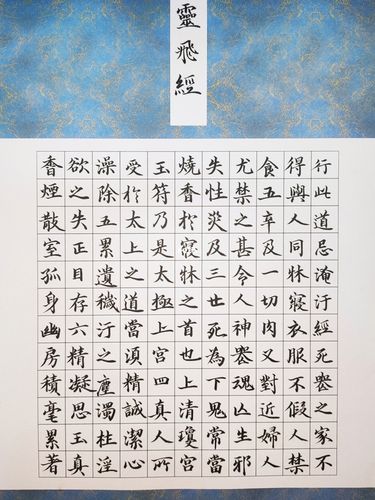 靈飛經
行此道忌淹汙經死喪之家不
得與人同牀寢衣服不假人禁
食五辛及一切肉又對近婦人
尤禁之甚令人神喪魂亡生邪
失性災及三世死為下鬼常當
燒香於寢牀之首也上清瓊宮
玉符乃是太極上宮四真人所
受於太上之道當須精誠潔心
澡除五累遺穢汙之塵濁杜淫
欲之失正目存六精凝思玉真
香煙散室孤身幽房積毫累著